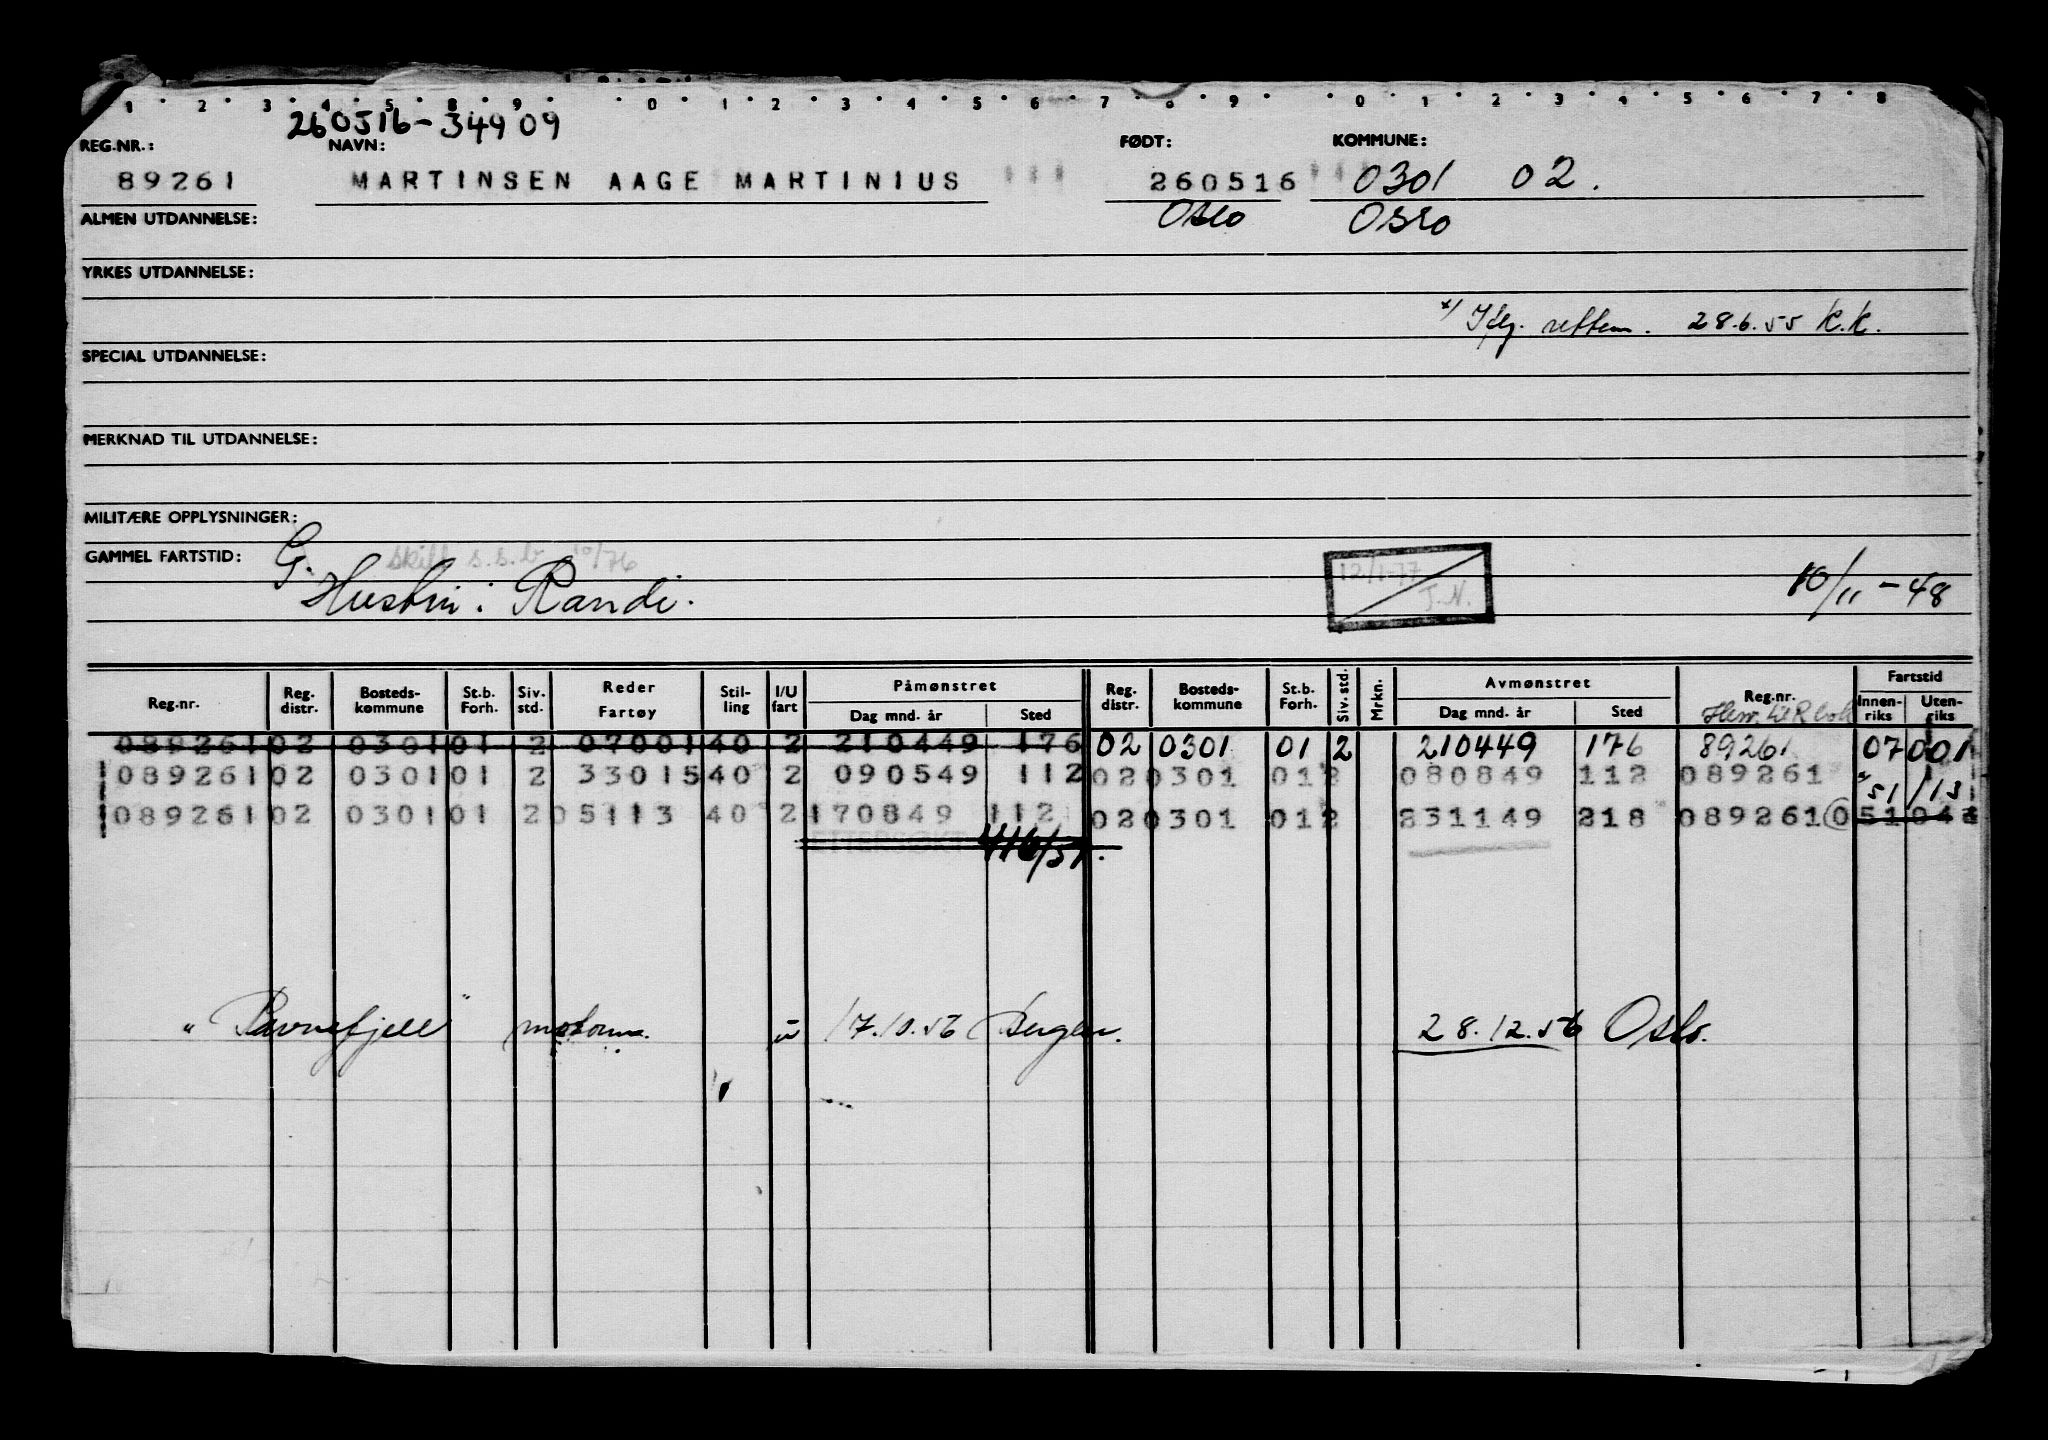 1 2 3 4 5 8 9 0 1 2 3 4 5 6 7 8 9 0 1 2 3 4 5 6 7 8
260516-34909
REG.NR.: NAVN: FØDT: KOMMUNE:
89261 MARTINSEN AAGE MARTINIUS 260516 0301 02.
ALMEN UTDANNELSE: Oslo Oslo
YRKES UTDANNELSE:
28.6.55 K.K.
SPECIAL UTDANNELSE:
MERKNAD TIL UTDANNELSE:
MILITÆRE OPPLYSNINGER:
GAMMEL FARTSTID: G. s.s.b. 10/76 12/1-77
Hustru: Randi. J.N. 10/11-48
Reg.nr. Reg. distr. Bosteds- kommune St.b. Forh. Siv. std. Reder Fartøy Stil- ling I/U fart Påmønstret Dag mnd. år Sted Reg. distr. Bosteds- kommune St.b. Forh. Siv. std. Mrkn. Avmønstret Dag mnd. år Sted Reg.nr. Fartstid Innen- riks Uten- riks
089261 02 0301 01 2 07001 40 2 210449 176 02 0301 01 2 210449 176 89261 07001
089261 02 0301 01 2 33015 40 2 090549 112 02 0301 01 2 080849 112 089261
51 113
089261 02 0301 01 2 05113 40 2 170849 112 02 0301 01 2 231149 218 089261 0 51 043
ETTERSØKT
"Ravnefjell" 17.10.56 Bergen. 28.12.56 Oslo.